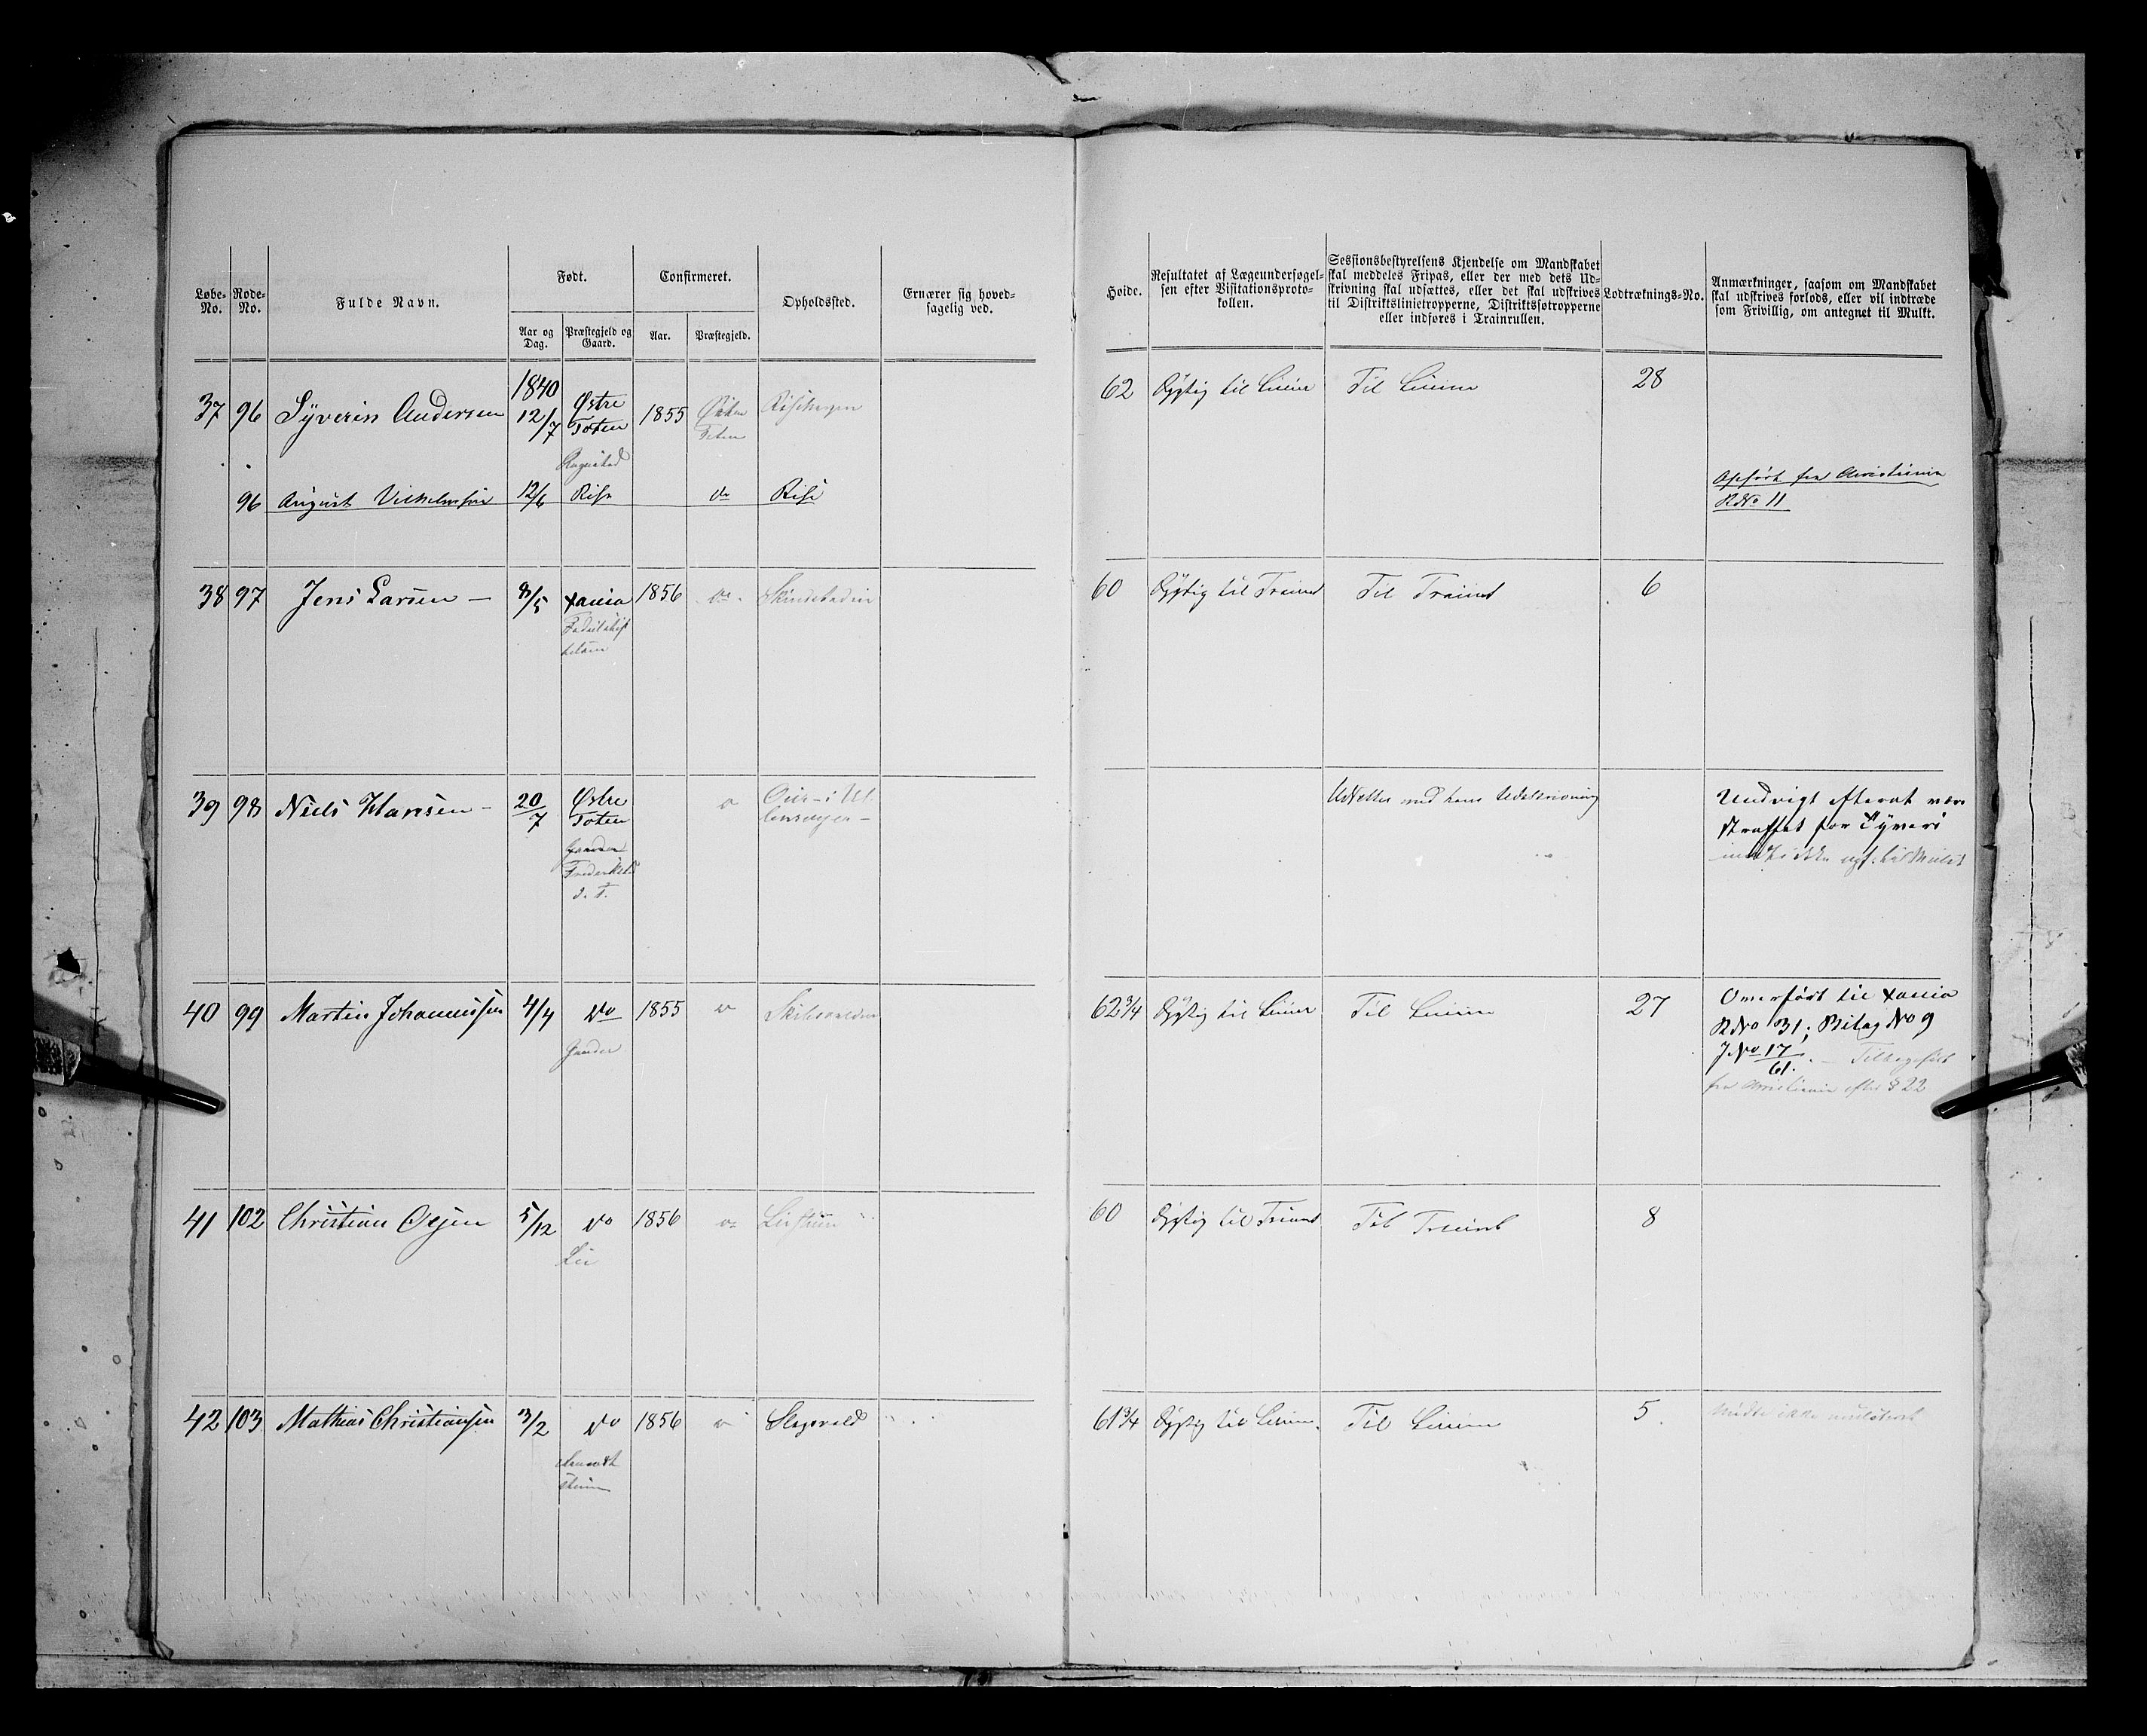 Løbe-No.
Rode-No.
Fulde Navn.
Født.
Aar og Dag.
Præstegjeld og Gaard.
Confirmeret.
Aar.
Præstegjeld.
Opholdssted.
Ernærer sig hoved-
sagelig ved.
Høide.
Resultatet af Lægeundersøgel-
sen efter Visitationsproto-
kollen.
Sessionsbestyrelsens Kjendelse om Mandskabet
skal meddeles Fripas, eller der med dets Ud-
skrivning skal udsættes, eller det skal udskrives
til Distriktslinietropperne, Distriktsføtropperne
eller indføres i Trainrullen.
Lodtræknings-No.
Anmærkninger, saasom om Mandskabet
skal udskrives forlods, eller vil indtræde
som Frivillig, om antegnet til Mulkt.
1840
37 96 Syverin Andersen 12/7 Østre Toten 1855 Østre Toten
62 Dygtig til Linien Til Linien 28
96 August Vilhelmsen 12/6 Rise do Rise
Opført fra Christiania
RNo 11
38 97 Jens Larsen — 3/5 Xania 1856 do
60 Dygtig til Trainet Til Trainet 6
39 98 Niels Hansen — 20/7 Østre Toten
Udsættes med hans Udskrivning
Undvigt efterat være
straffet for Tyveri
40 99 Martin Johannessen 4/4 do 1855
62 3/4 Dygtig til Linien Til Linien 27
Overført til Xania
RNo 31; Bilag No 9
JNo 17/61. — Tilbageført
fra Christiania efter § 22
41 102 Christian Olsen 5/12 do 1856
Lie
60 Dygtig til Trainet Til Trainet 8
42 103 Mathias Christiansen 3/2 do 1856
61 3/4 Dygtig til Linien. Til Linien 5.
Mødte ikke